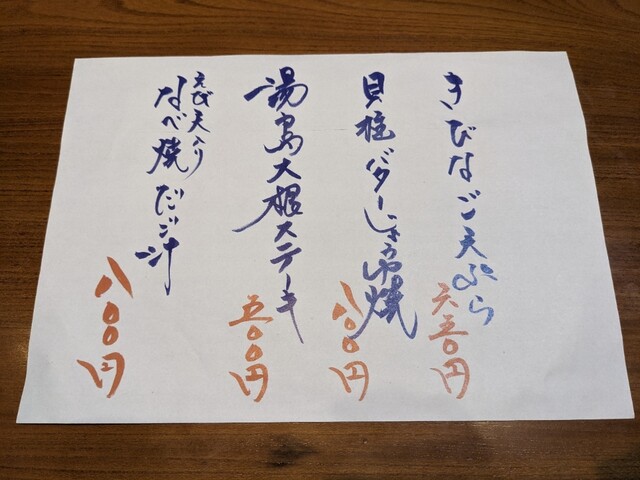 きびなご天ぷら
六五〇円
貝柱バターしょうゆ焼
八〇〇円
湯島大根ステーキ
五〇〇円
えび天入り
なべ焼だご汁
八〇〇円